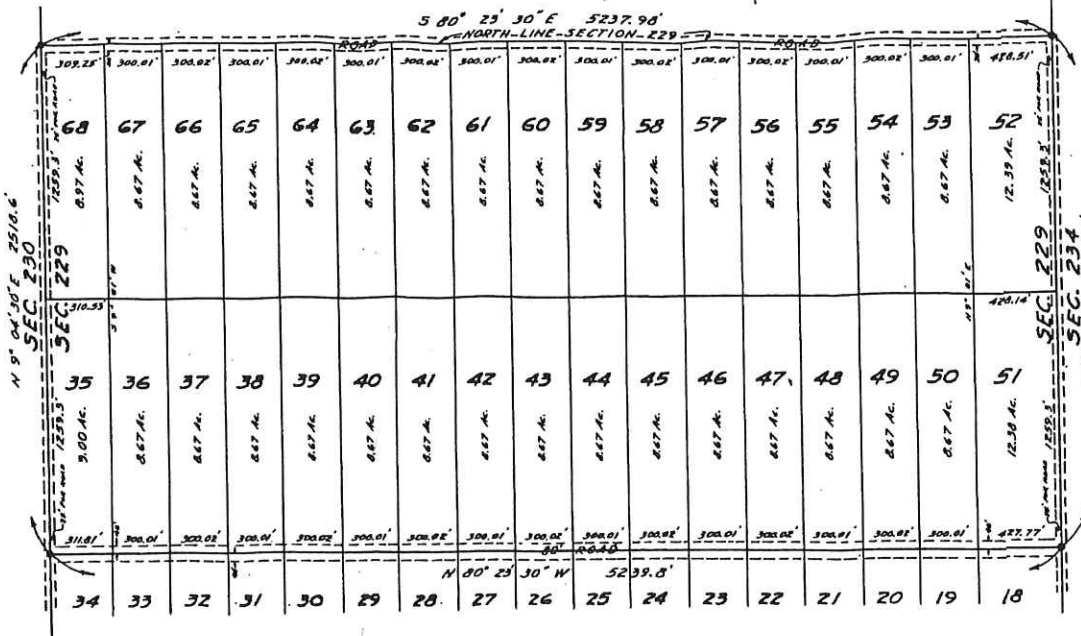 S 80° 23' 30" E 5237.98'
NORTH-LINE-SECTION-229
ROAD ROAD
309.25' 300.01' 300.02' 300.01' 300.02' 300.01' 300.02' 300.01' 300.02' 300.01' 300.02' 300.01' 300.02' 300.01' 300.02' 300.01' 428.51'
68 67 66 65 64 63 62 61 60 59 58 57 56 55 54 53 52
1259.3' 8.97 Ac. 8.67 Ac. 8.67 Ac. 8.67 Ac. 8.67 Ac. 8.67 Ac. 8.67 Ac. 8.67 Ac. 8.67 Ac. 8.67 Ac. 8.67 Ac. 8.67 Ac. 8.67 Ac. 8.67 Ac. 8.67 Ac. 8.67 Ac. 12.39 Ac. 1259.3'
N 9° 04' 30" E 2518.6'
SEC. 230
SEC. 229
SEC. 229
SEC. 234
310.53' 428.14'
N 9° 01' E
35 36 37 38 39 40 41 42 43 44 45 46 47 48 49 50 51
1259.3' 9.00 Ac. 8.67 Ac. 8.67 Ac. 8.67 Ac. 8.67 Ac. 8.67 Ac. 8.67 Ac. 8.67 Ac. 8.67 Ac. 8.67 Ac. 8.67 Ac. 8.67 Ac. 8.67 Ac. 8.67 Ac. 8.67 Ac. 8.67 Ac. 12.38 Ac. 1259.3'
311.81' 300.01' 300.02' 300.01' 300.02 300.01' 300.02 300.01' 300.02 300.01' 300.02' 300.01' 300.02' 300.01' 300.02' 300.01' 427.77'
80' ROAD
N 80° 23' 30" W 5239.8'
34 33 32 31 30 29 28 27 26 25 24 23 22 21 20 19 18